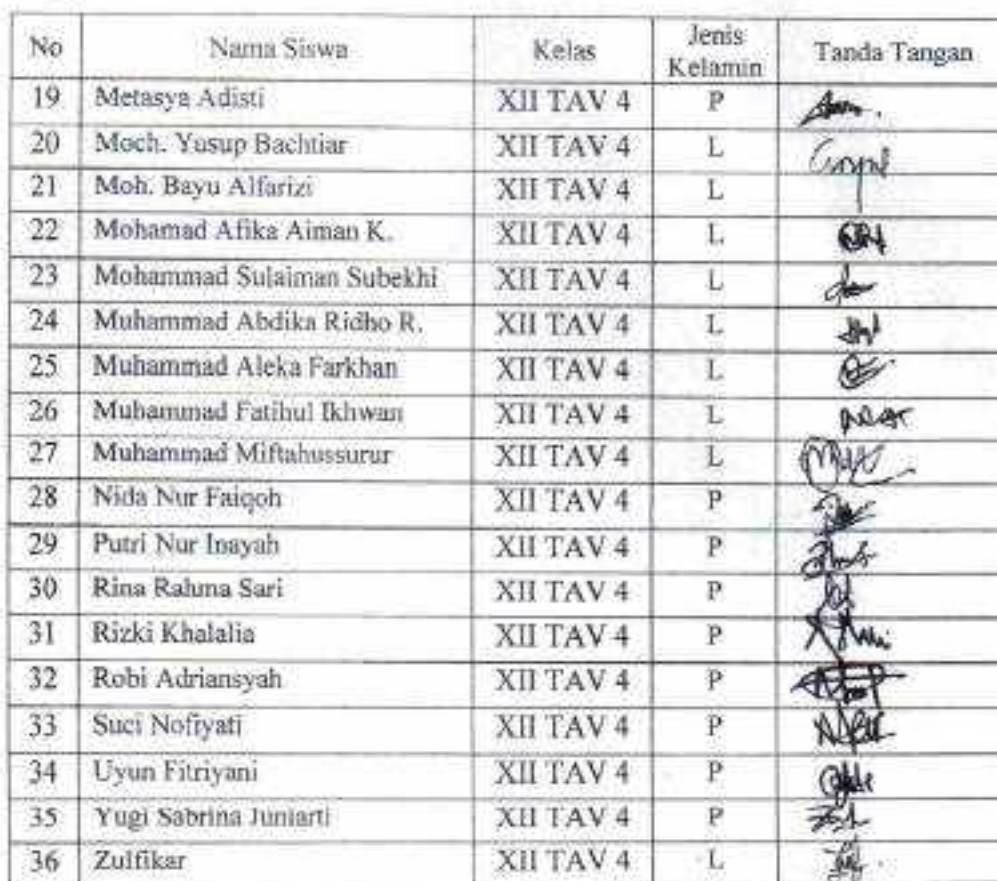 No Nama Siswa Kelas Jenis Kelamin Tanda Tangan
19 Metasya Adisti XII TAV 4 P
20 Moch. Yusup Bachtiar XII TAV 4 L
21 Moh. Bayu Alfarizi XII TAV 4 L
22 Mohamad Afika Aiman K. XII TAV 4 L
23 Mohammad Sulaiman Subekhi XII TAV 4 L
24 Muhammad Abdika Ridho R. XII TAV 4 L
25 Muhammad Aleka Farkhan XII TAV 4 L
26 Muhammad Fatihul Ikhwan XII TAV 4 L
27 Muhammad Miftahussurur XII TAV 4 L
28 Nida Nur Faiqoh XII TAV 4 P
29 Putri Nur Inayah XII TAV 4 P
30 Rina Rahma Sari XII TAV 4 P
31 Rizki Khalalia XII TAV 4 P
32 Robi Adriansyah XII TAV 4 P
33 Suci Nofiyati XII TAV 4 P
34 Uyun Fitriyani XII TAV 4 P
35 Yugi Sabrina Juniarti XII TAV 4 P
36 Zulfikar XII TAV 4 L